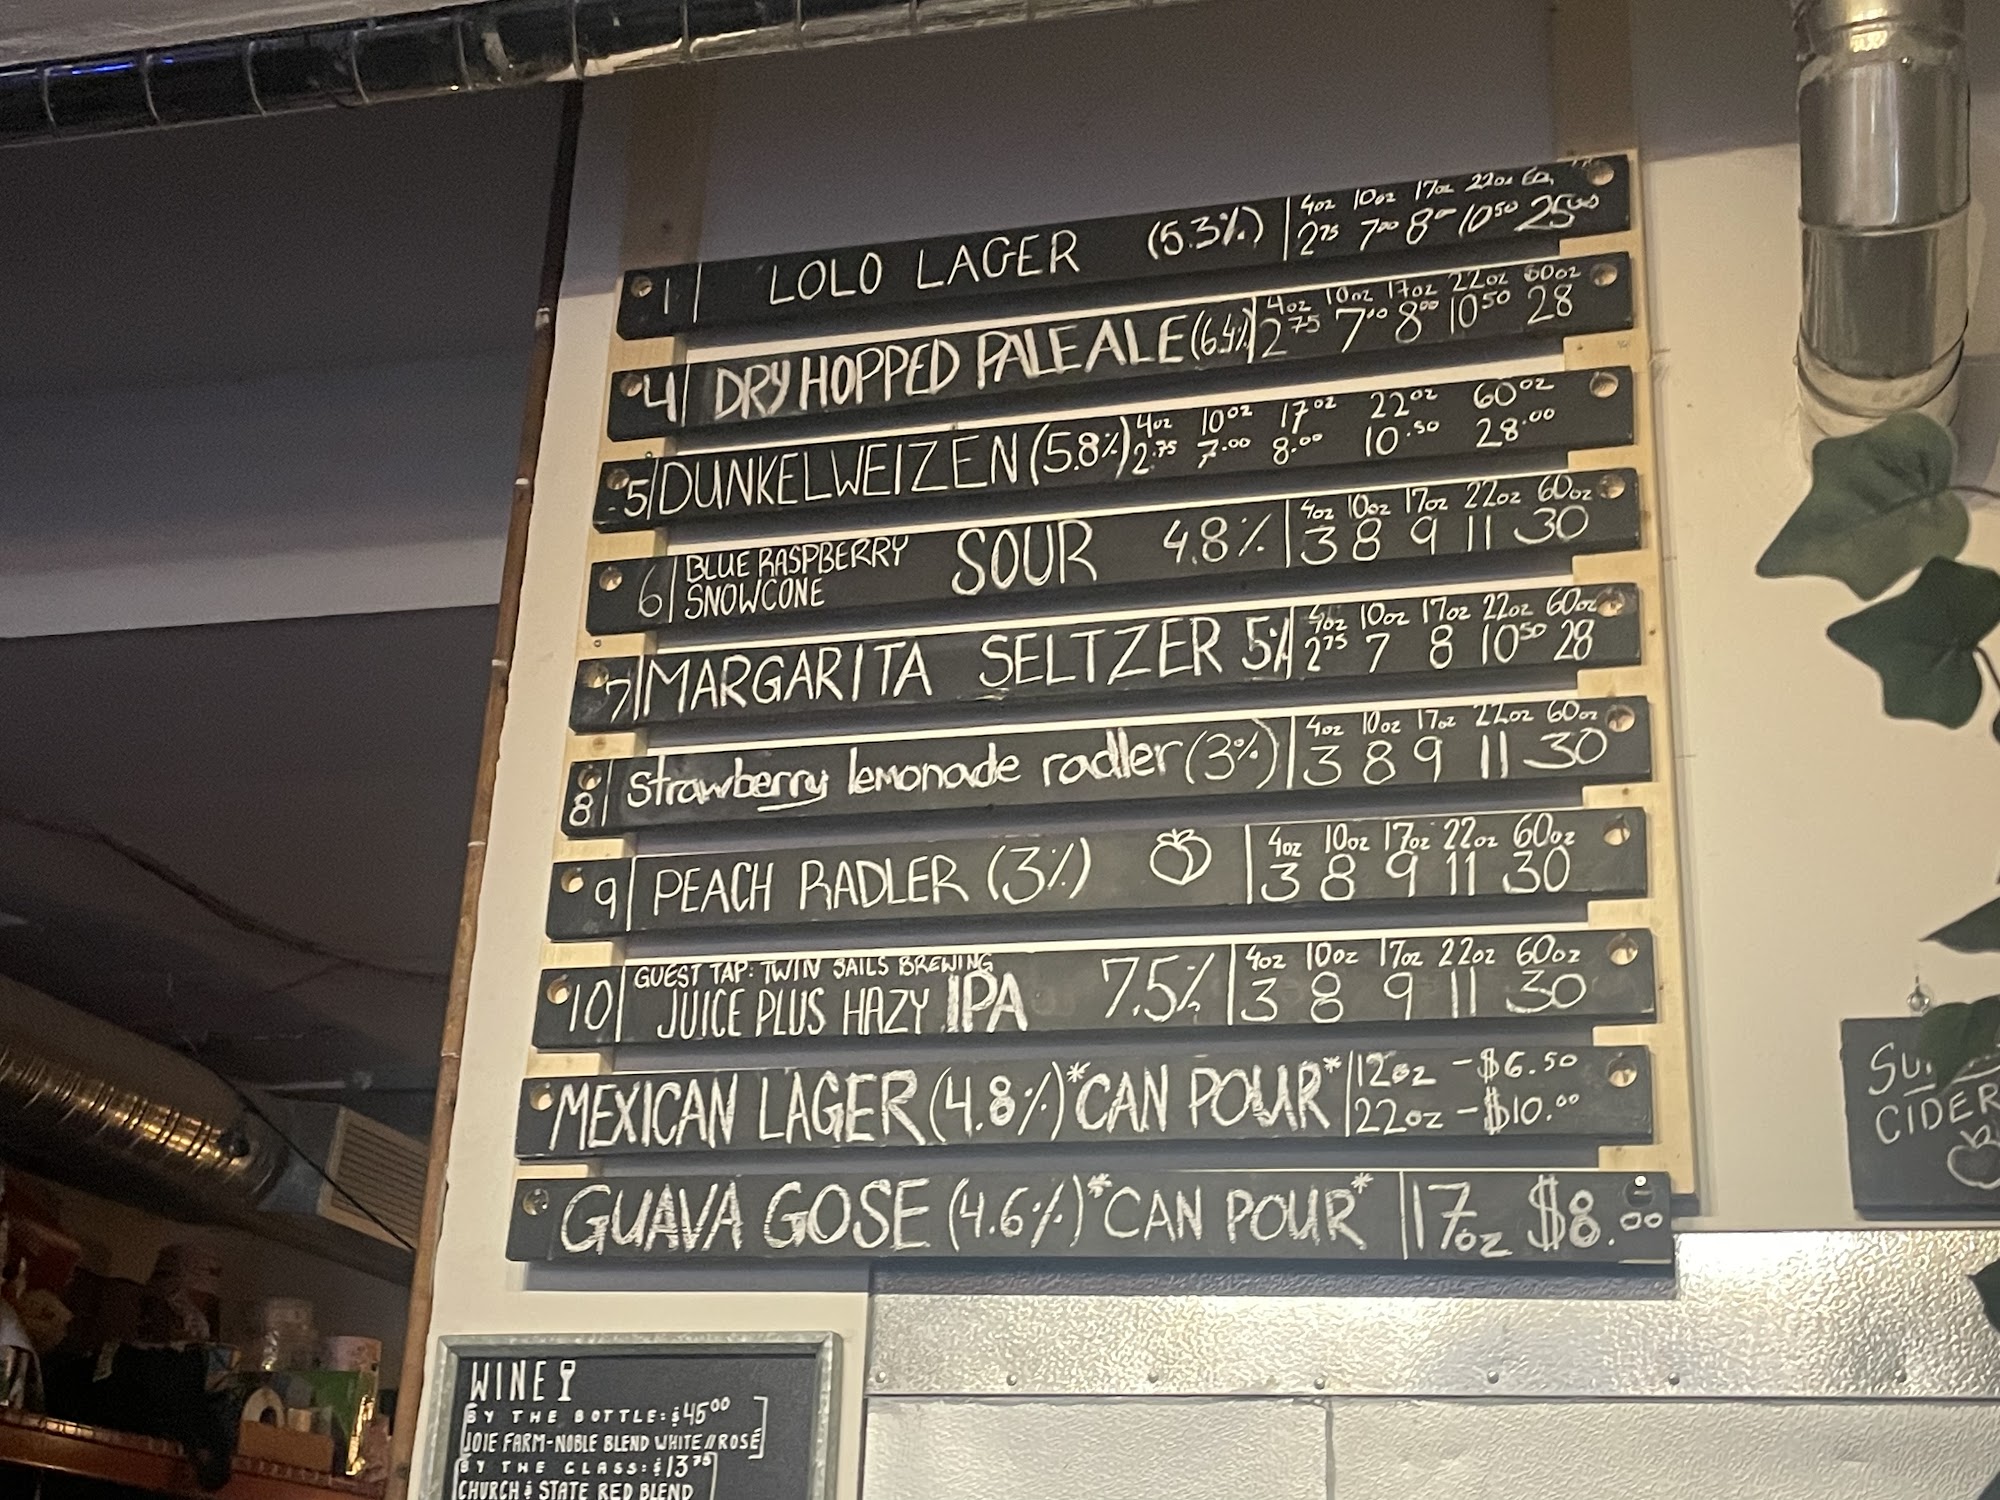 1 LOLO LAGER (5.3%) 4oz 10oz 17oz 22oz 60z
2 75 7 00 8 00 10 50 25 00
4 DRY HOPPED PALE ALE (6.4%) 4oz 10oz 17oz 22oz 60oz
2 75 7 00 8 00 10 50 28
5 DUNKELWEIZEN (5.8%) 4oz 10oz 17oz 22oz 60oz
2.75 7.00 8.00 10.50 28.00
6 BLUE RASPBERRY
SNOWCONE SOUR 4.8% 4oz 10oz 17oz 22oz 60oz
3 8 9 11 30
7 MARGARITA SELTZER 5% 4oz 10oz 17oz 22oz 60oz
2 75 7 8 10 50 28
8 strawberry lemonade radler (3%) 4oz 10oz 17oz 22oz 60oz
3 8 9 11 30
9 PEACH RADLER (3%) 4oz 10oz 17oz 22oz 60oz
3 8 9 11 30
10 GUEST TAP: TWIN SAILS BREWING
JUICE PLUS HAZY IPA 7.5% 4oz 10oz 17oz 22oz 60oz
3 8 9 11 30
MEXICAN LAGER (4.8%) *CAN POUR* 12oz - $6.50
22oz - $10.00
GUAVA GOSE (4.6%) *CAN POUR* 17oz $8.00
CIDER
WINE
BY THE BOTTLE: $45 00
JOIE FARM-NOBLE BLEND WHITE // ROSÉ
BY THE GLASS: $13 75
CHURCH & STATE RED BLEND